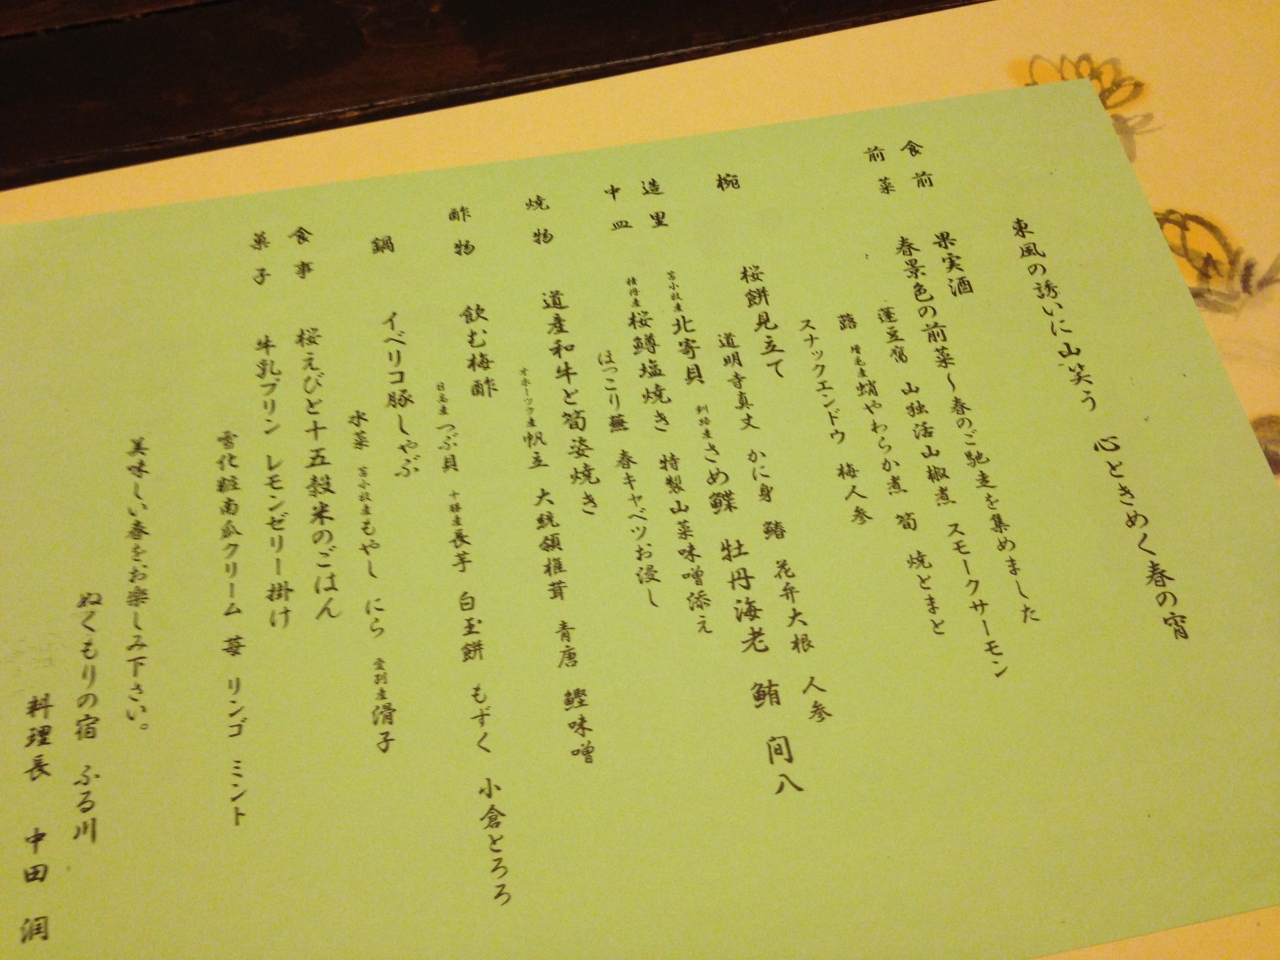 東風の誘いに山笑う 心ときめく春の宵
食前 果実酒
前菜 春景色の前菜〜春のご馳走を集めました
蓬豆腐 山独活山椒煮 スモークサーモン
蕗 増毛産蛸やわらか煮 筍 焼とまと
スナックエンドウ 梅人参
椀 桜餅見立て
道明寺真丈 かに身 鰆 花弁大根 人参
造里 苫小牧産北寄貝 釧路産さめ鰈 牡丹海老 鮪 間八
中皿 積丹産桜鱒塩焼き 特製山菜味噌添え
ほっこり蕪 春キャベツお浸し
焼物 道産和牛と筍姿焼き
オホーツク産帆立 大統領椎茸 青唐 鰹味噌
酢物 飲む梅酢
日高産つぶ貝 十勝産長芋 白玉餅 もずく 小倉とろろ
鍋 イベリコ豚しゃぶ
水菜 苫小牧産もやし にら 愛別産滑子
食事 桜えびと十五穀米のごはん
菓子 牛乳プリン レモンゼリー掛け
雪化粧南瓜クリーム 苺 リンゴ ミント
美味しい春をお楽しみ下さい。
ぬくもりの宿 ふる川
料理長 中田 潤